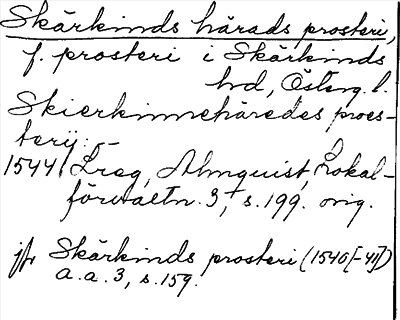 Skärkinds härads prosteri,
f. prosteri i Skärkinds
hd, Österg. l.
Skierkinnehäredes proes-
terij: –
1544 Lreg, Almquist, Lokal-
förvaltn. 3, s. 199. orig.
jfr Skärkinds prosteri (1540[-41])
a.a. 3, s. 159.